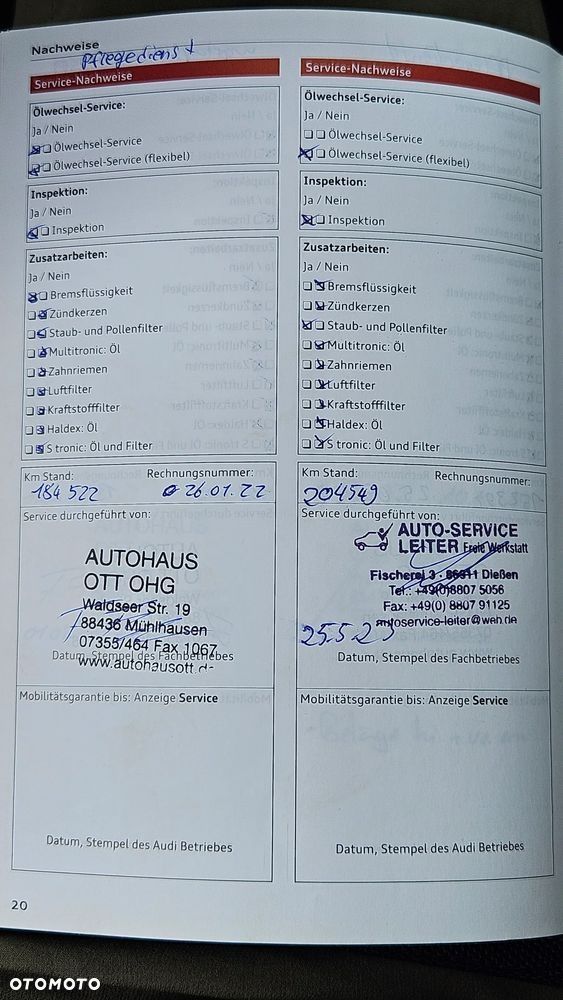 Nachweise
Pflegedienst
Service-Nachweise
Ölwechsel-Service:
Ja / Nein
Ölwechsel-Service
Ölwechsel-Service (flexibel)
Inspektion:
Ja / Nein
Inspektion
Zusatzarbeiten:
Ja / Nein
Bremsflüssigkeit
Zündkerzen
Staub- und Pollenfilter
Multitronic: Öl
Zahnriemen
Luftfilter
Kraftstofffilter
Haldex: Öl
S tronic: Öl und Filter
Km Stand: Rechnungsnummer:
184 522 26.01.22
Service durchgeführt von:
AUTOHAUS
OTT OHG
Waldseer Str. 19
88436 Mühlhausen
07355/464 Fax 1067
www.autohausott.de
Datum, Stempel des Fachbetriebes
Mobilitätsgarantie bis: Anzeige Service
Datum, Stempel des Audi Betriebes
20
Service-Nachweise
Ölwechsel-Service:
Ja / Nein
Ölwechsel-Service
Ölwechsel-Service (flexibel)
Inspektion:
Ja / Nein
Inspektion
Zusatzarbeiten:
Ja / Nein
Bremsflüssigkeit
Zündkerzen
Staub- und Pollenfilter
Multitronic: Öl
Zahnriemen
Luftfilter
Kraftstofffilter
Haldex: Öl
S tronic: Öl und Filter
Km Stand: Rechnungsnummer:
204549
Service durchgeführt von:
AUTO-SERVICE
LEITER Freie Werkstatt
Fischerei 3 · 86911 Dießen
Tel.: +49(0)8807 5056
Fax: +49(0) 8807 91125
autoservice-leiter@web.de
25.5.23
Datum, Stempel des Fachbetriebes
Mobilitätsgarantie bis: Anzeige Service
Datum, Stempel des Audi Betriebes
OTOMOTO